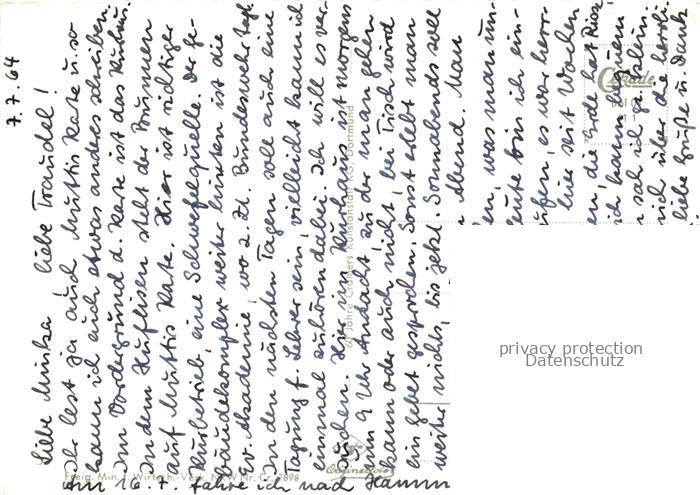 7.7.64
Liebe Minka! Liebe Traudel!
Ihr lest ja auch Muttis Karte u. so
kann ich euch etwas anderes schreiben.
Im Vordergrund d. Karte ist das Kurhaus.
In dem Hufeisen steht der Brunnen
auf Muttis Karte. Hier ist richtiger
Kurbetrieb, eine Schwefelquelle. Der Ge-
bäudekomplex weiter hinten ist die
Ev. Akademie, wo z. Zt. Bundeswehr tagt.
In den nächsten Tagen soll auch eine
Tagung f. Lehrer sein, vielleicht kann ich
einmal zuhören dabei. Ich will es ver-
suchen. Hier im Kurhaus ist morgens
um 9 Uhr Andacht, zu der man gehen
kann oder auch nicht, bei Tisch wird
ein Gebet gesprochen. Sonst erlebt man
weiter nichts, bis jetzt. Sonnabends soll
Abend. Man
en, was man un-
eute bin ich ein-
ufen, es war herr-
hier seit Wochen
en, die Erde hat Risse
ich kann
sah ich
ich über die herrli-
liebe Grüße u. Dank
Am 16.7. fahre ich nach Hamm
60 Jahre Cramers Kunstanstalt KG, Dortmund
Freig. Min. f. Wirtsch.- Verk. NRW Nr. Cr. 7898
Cabinetfoto
privacy protection
Datenschutz